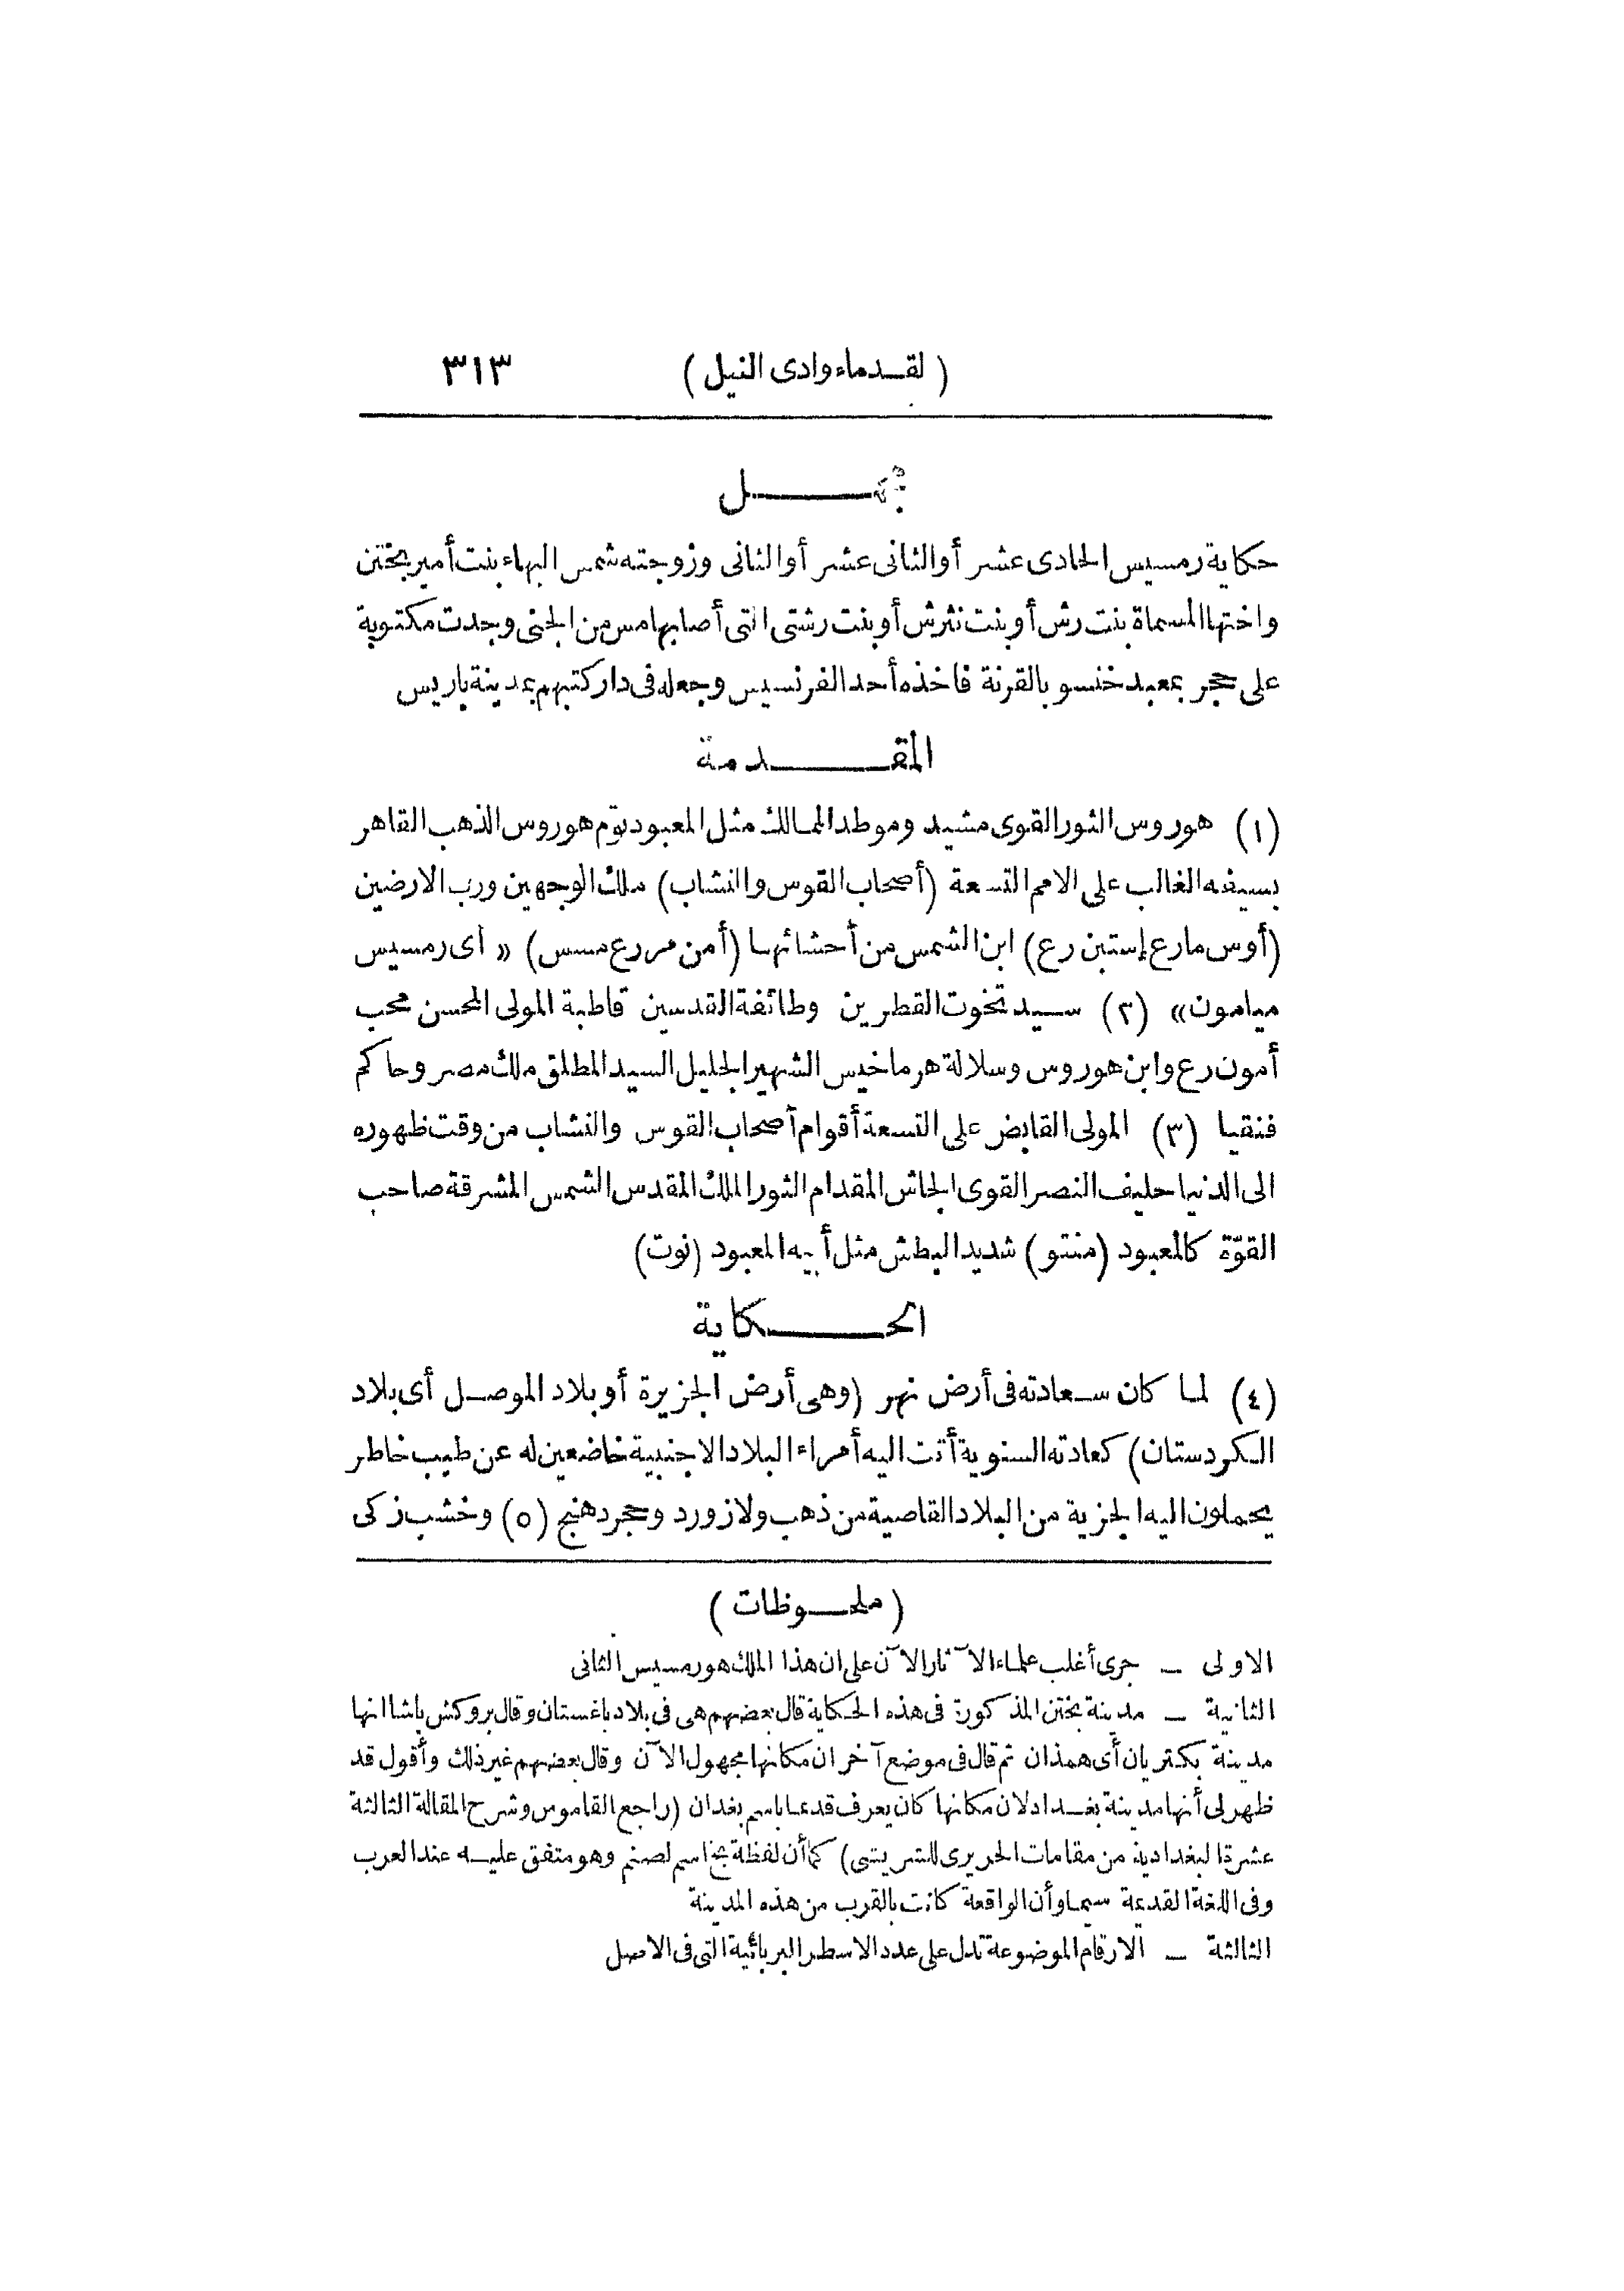 (لقدماء وادى النيل) ٣١٣
حكاية رمسيس الحادى عشر أو الثانى عشر أو الثانى وزوجته شمس البهاء بنت أمير بختن
واختها المسماة بنت رش أو بنت نثرش أو بنت رشتى التى أصابها مس من الجنى وجدت مكتوبة
على حجر بمعبد خنسو بالقرنة فاخذه أحد الفرنسيس وجعله فى دار كتبهم بمدينة باريس
المقدمة
(١) هوروس الثور القوى مشيد وموطد الممالك مثل المعبود توم هوروس الذهب القاهر
بسيفه الغالب على الامم التسعة (أصحاب القوس والنشاب) ملك الوجهين ورب الارضين
(أوس مارع إستبن رع) ابن الشمس من أحشائها (أمن مررع مسس) « أى رمسيس
ميامون» (٢) سيد تخوت القطرين وطائفة القدسين قاطبة المولى المحسن محب
أمون رع وابن هوروس وسلالة هرماخيس الشهير الجليل السيد المطلق ملك مصر وحاكم
فنقيا (٣) المولى القابض على التسعة أقوام أصحاب القوس والنشاب من وقت ظهوره
الى الدنيا حليف النصر القوى الجاش المقدام الثور الملك المقدس الشمس المشرقة صاحب
القوّة كالمعبود (منتو) شديد البطش مثل أبيه المعبود (نوت)
الحكاية
(٤) لما كان سعادته فى أرض نهر (وهى أرض الجزيرة أو بلاد الموصل أى بلاد
الكردستان) كعادته السنوية أتت اليه أمراء البلاد الاجنبية خاضعين له عن طيب خاطر
يحملون اليه الجزية من البلاد القاصية من ذهب ولازورد وحجر دهنج (٥) وخشب زكى
(ملحوظات)
الاولى ــ جرى أغلب علماء الآثار الآن على ان هذا الملك هو رمسيس الثانى
الثانية ــ مدينة بختن المذكورة فى هذه الحكاية قال بعضهم هى فى بلاد باغستان وقال بروكش باشا انها
مدينة بكتريان أى همذان ثم قال فى موضع آخر ان مكانها مجهول الآن وقال بعضهم غير ذلك وأقول قد
ظهر لى أنها مدينة بغداد لان مكانها كان يعرف قدعا باسم بغدان (راجع القاموس وشرح المقالة الثالثة
عشرة البغدادية من مقامات الحريرى للشريشى) كما أن لفظة بخ اسم لصنم وهو متفق عليه عند العرب
وفى اللغة القديمة سيما وأن الواقعة كانت بالقرب من هذه المدينة
الثالثة ــ الارقام الموضوعة تدل على عدد الاسطر البربائية التى فى الاصل